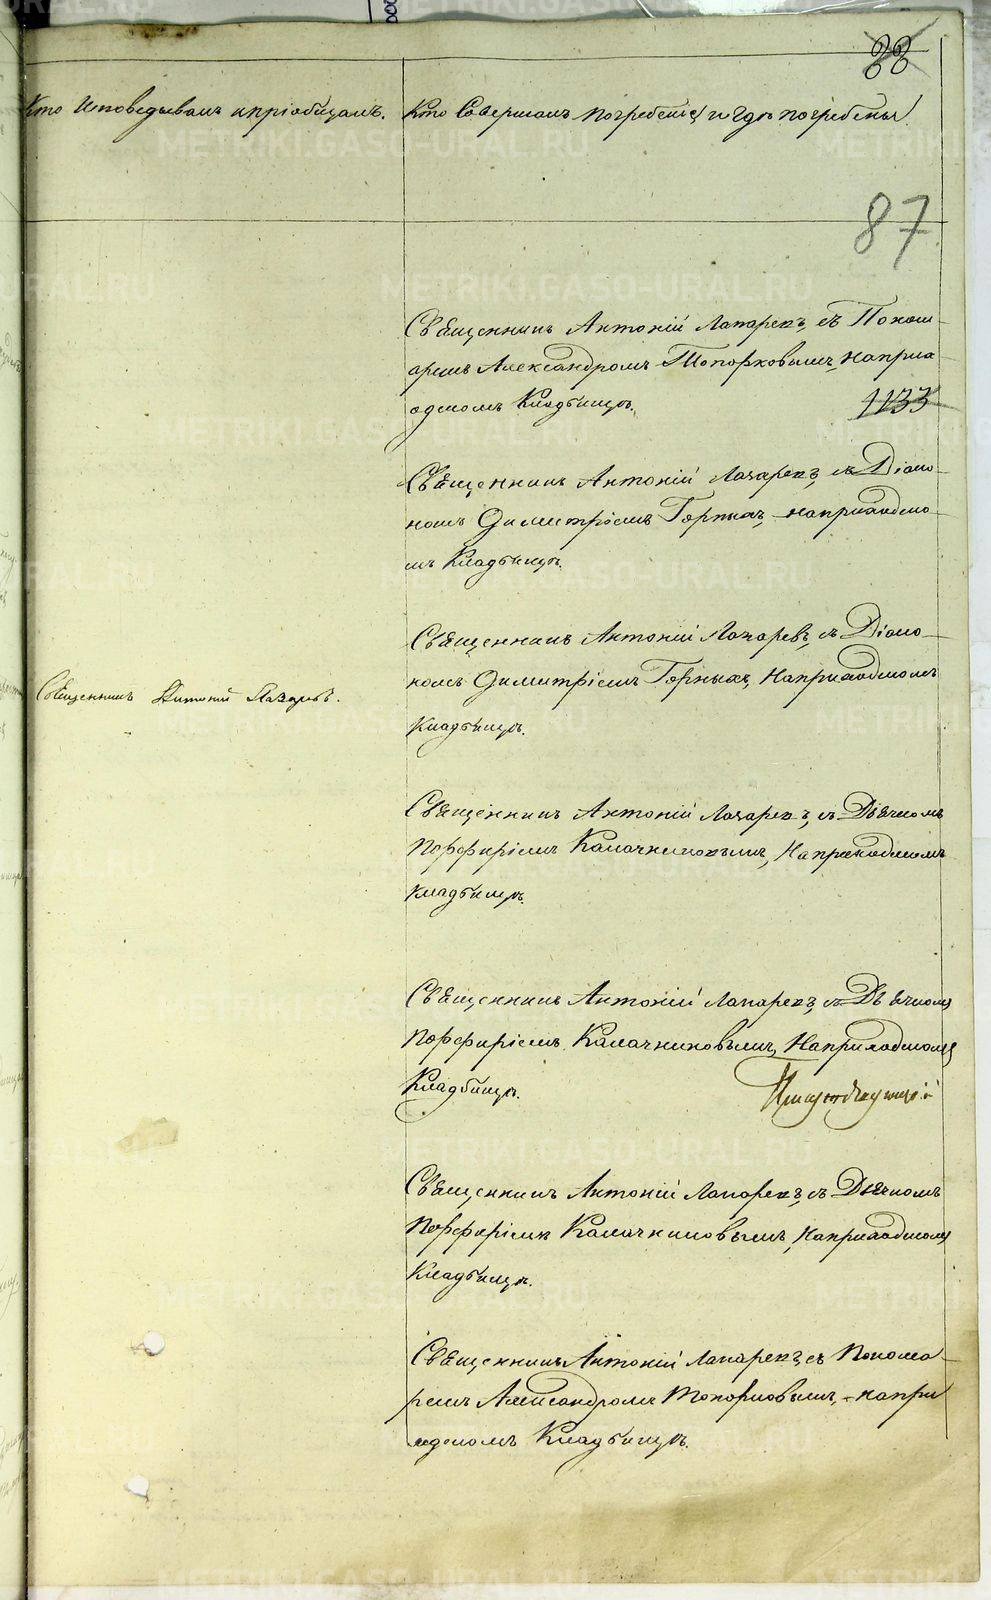 88
Кто Исповедывалъ и пріобщалъ.
Кто Совершалъ погребеніе и где погребены
87
Священникъ Антоній Лазаревъ, съ Поном-
аремъ Александромъ Топорковымъ, наприхо
одскомъ Кладбищѣ.
1133
Священникъ Антоній Лазаревъ, съ Діако-
номъ Димитріемъ Горныхъ, наприходско-
мъ Кладбищѣ.
Священникъ Антоній Лазаревъ, съ Діако-
номъ Димитріемъ Горныхъ, Наприходскомъ
Кладбищѣ.
Священникъ Антоній Лазаревъ.
Священникъ Антоній Лазаревъ, съ Дьячкомъ
Порфиріемъ Калачниковымъ, Наприходскомъ
Кладбищѣ.
Священникъ Антоній Лазаревъ, съ Дьячкомъ
Порфиріемъ Калачниковымъ, Наприходскомъ
Кладбищѣ.
Священникъ Антоній Лазаревъ, съ Дьячкомъ
Порфиріемъ Калачниковымъ, Наприходскомъ
Кладбищѣ.
Священникъ Антоній Лазаревъ, съ Понома-
ремъ Александромъ Топорковымъ, напри
ходскомъ Кладбищѣ.
METRIKI.GASO-URAL.RU